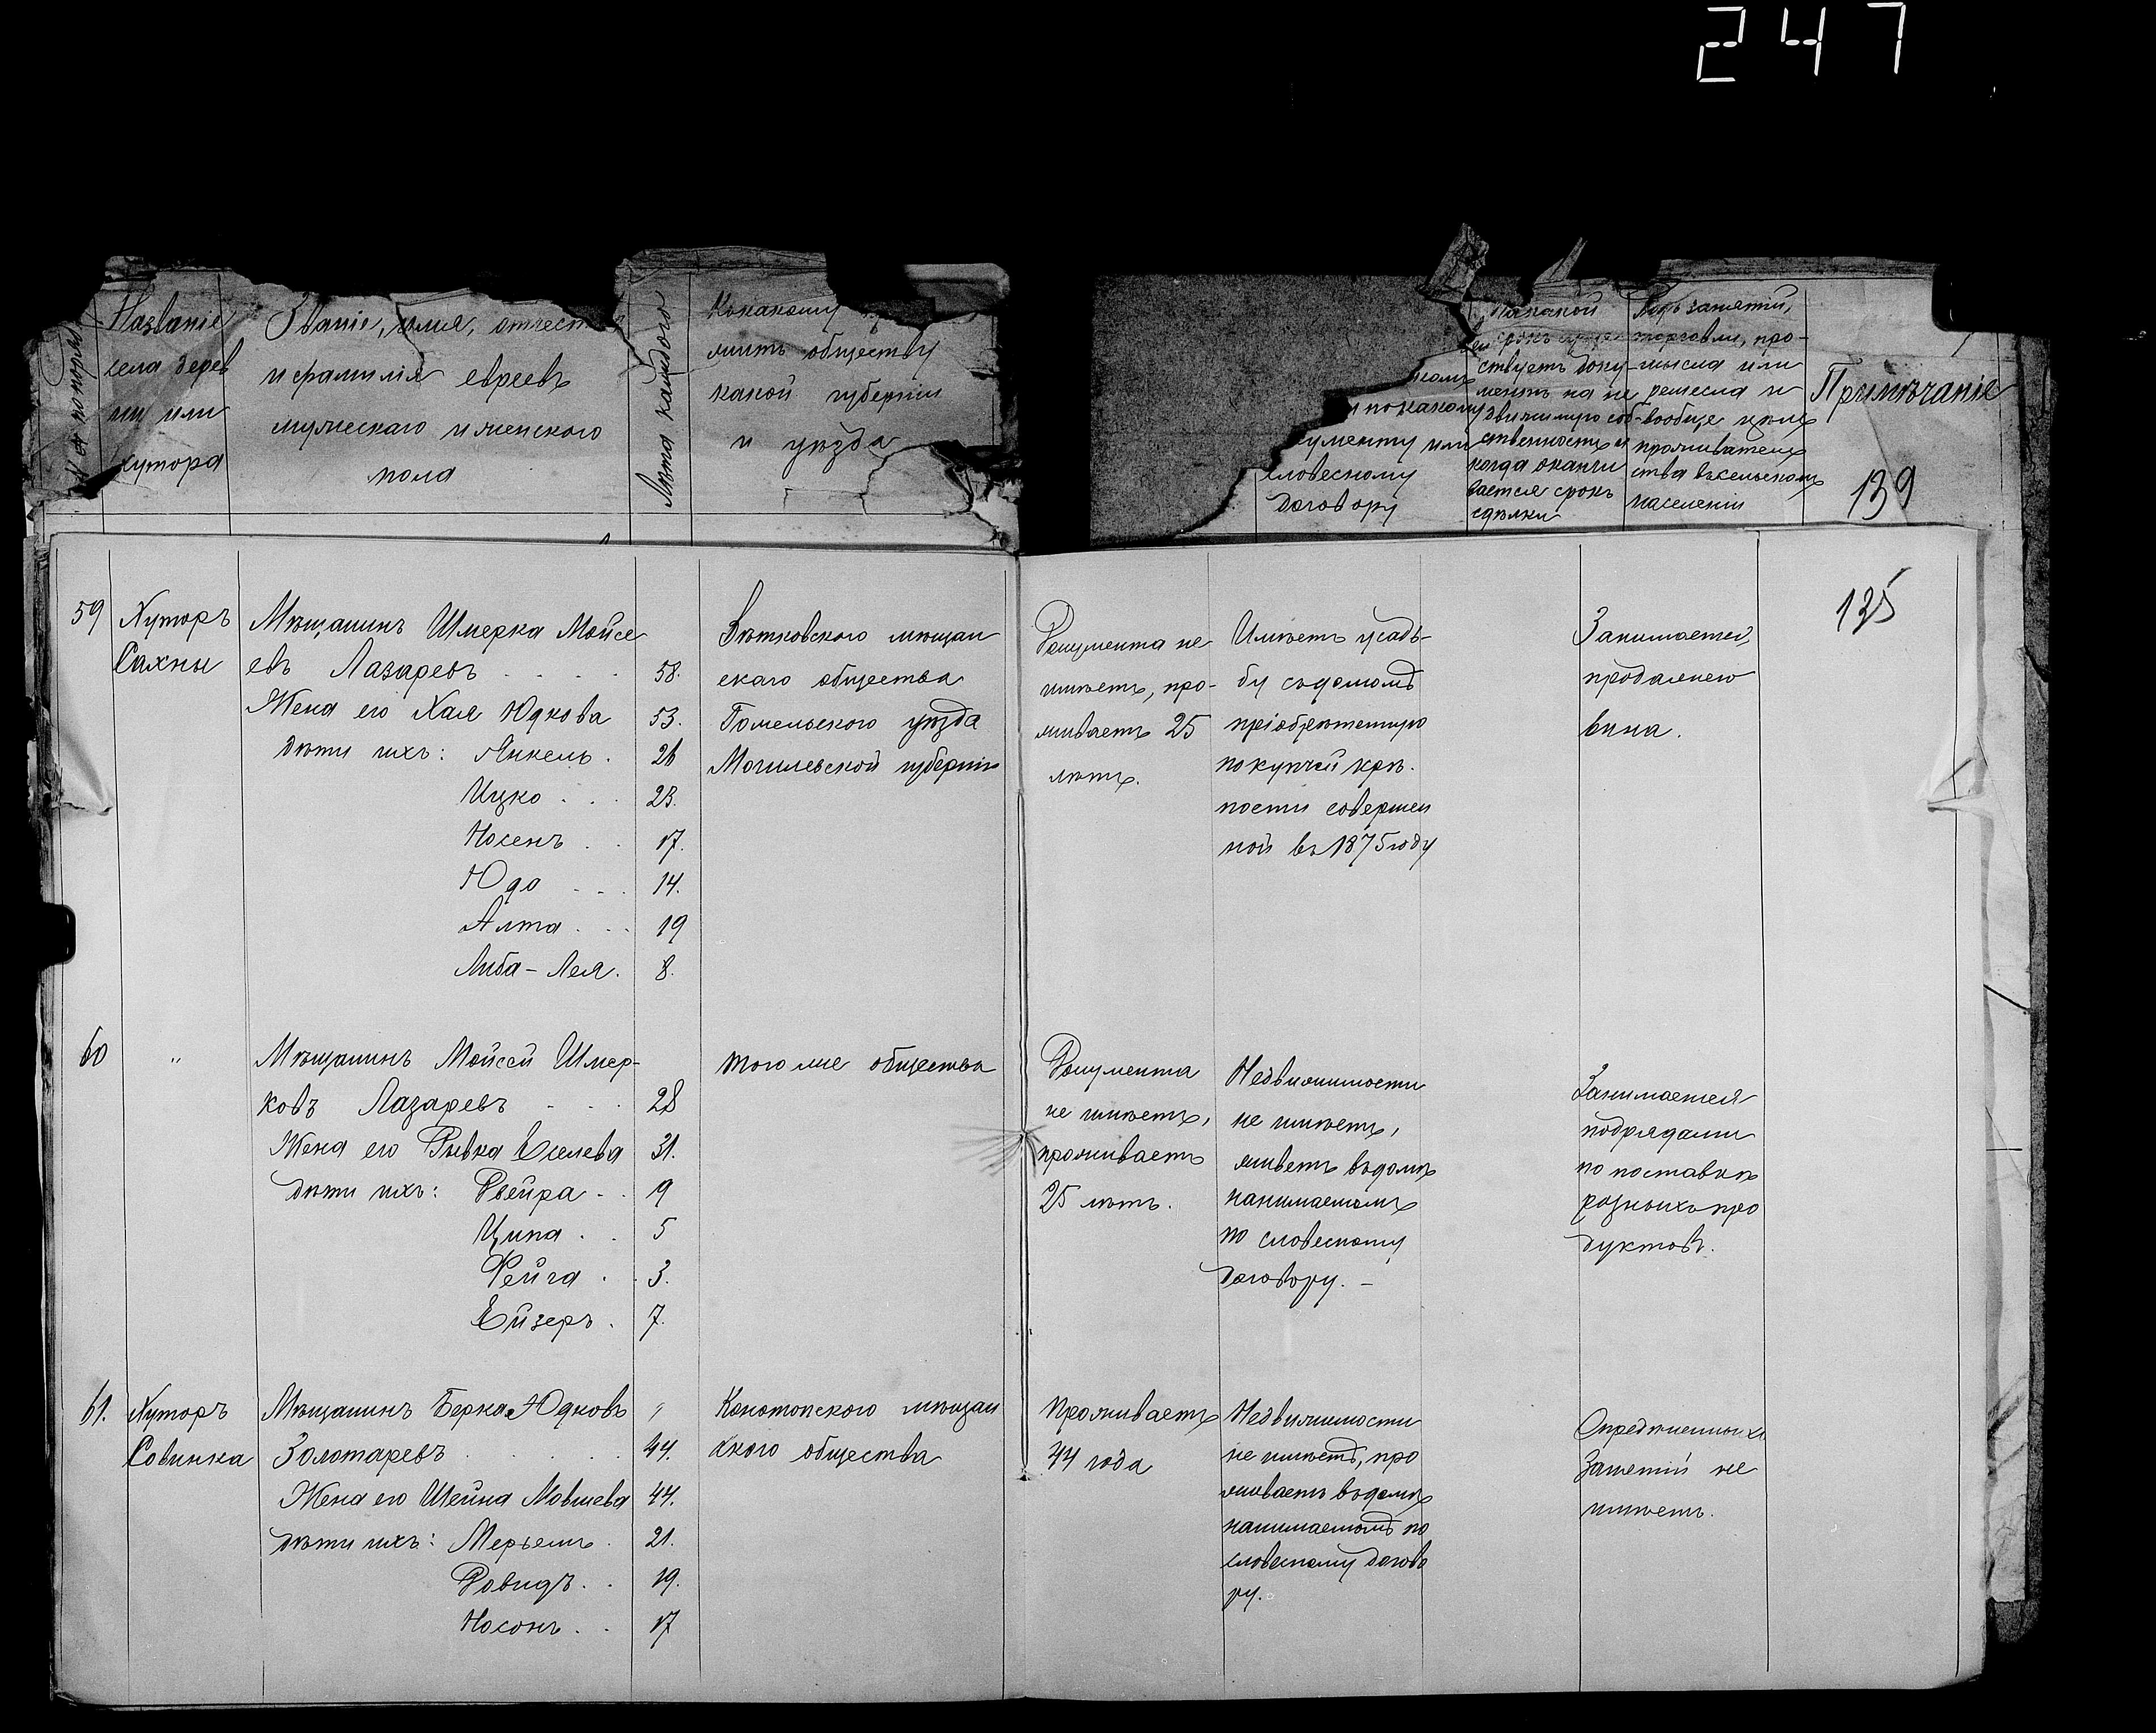 247
№№ по поряд
Названіе
села дерев
ни или
хутора
Званіе, имя, отчест
и фамилія евреевъ
мужескаго и женского
пола
Лѣта каждого
Къ какому
житъ обществу
какой губерніи
и уѣзда
и по какому
ументу или
словесному
договору
На какой
срокъ
ствуетъ доку-
ментъ на не
движимую соб-
ственность и
когда оканчи
вается срокъ
сдѣлки
Родъ занятій,
торговли, про-
мысла или
ремесла и
вообще цѣль
проживатель
ства въ сельскомъ
населеніи
Примѣчаніе
139
125
59
Хуторъ
Сахны
Мѣщанинъ Шмерка Мойсе
евъ Лазаревъ . . . . 58.
Жена его Хая Юдкова 53.
дѣти ихъ: Янкель . 26
Ицко . . . 23.
Носенъ . . 17.
Юда . . . 14.
Алта . . . 19
Либа-Лея. 8.
Вѣтковского мѣщан
скаго общества
Гомельского уѣзда
Могилевской губерніи
Документа не
имѣетъ, про-
живаетъ 25
лѣтъ.
Имѣетъ усадь-
бу съ домомъ
пріобрѣтенную
по купчей крѣ.
пости совершен
ной въ 1875 году
Занимается
продажею
вина.
60
"
Мѣщанинъ Мойсей Шмер-
ковъ Лазаревъ . . . 28
Жена его Рывка Еселева 31.
дѣти ихъ: Двейра . . 9
Ципа . . 5
Фейга . . 3.
Ейзеръ . 7.
того же общества
Документа
не имѣетъ,
проживаетъ
25 лѣтъ.
Недвижимости
не имѣетъ,
живетъ въ домѣ
нанимаемомъ
по словесному
договору. –
Занимается
подрядами
по поставкѣ
разныхъ про
дуктовъ.
61.
Хуторъ
Совинка
Мѣщанинъ Берка Юдковъ "
Золотаревъ . . . . . 44.
Жена его Шейна Мовшева 44.
дѣти ихъ: Мерьемъ . 21.
Довидъ . . 19.
Носонъ . . 17
Конотопского мѣщан
ского общества
Проживаетъ
44 года
Недвижимости
не имѣетъ, про
живаетъ въ домѣ
нанимаемомъ по
словесному догово
ру.
Опредѣленныхъ
занятій не
имѣетъ.